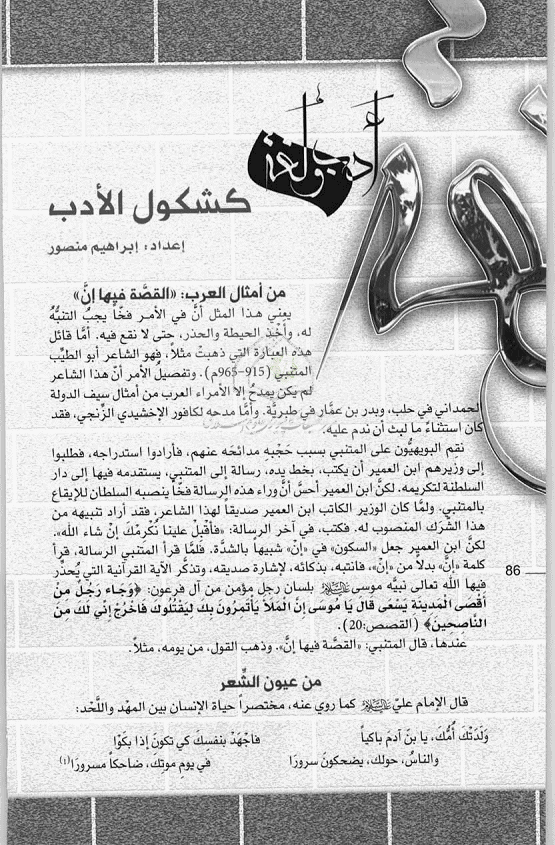 أدب ولغة
كشكول الأدب
إعداد: إبراهيم منصور
من أمثال العرب: «القصَّة فيها إنَّ»
يعني هذا المثل أنَّ في الأمر فخّاً يجبُ التنبُّهُ
له، وأخْذ الحيطة والحذر، حتى لا نقع فيه. أمَّا قائل
هذه العبارة التي ذهبتْ مثلاً، فهو الشاعر أبو الطيِّب
المتنبي (915-965م). وتفصيلُ الأمر أنّ هذا الشاعر
لم يكن يمدحُ إلا الأمراء العرب من أمثال سيف الدولة
الحمداني في حلب، وبدر بن عمَّار في طبريَّة. وأمَّا مدحه لكافور الإخشيدي الزّنجي، فقد
كان استثناءً ما لبث أن ندم عليه.
نقم البويهيُّون على المتنبي بسبب حَجْبه مدائحَه عنهم، فأرادوا استدراجه، فطلبوا
إلى وزيرهم ابن العمير أن يكتب، بخط يده، رسالة إلى المتنبي، يستقدمه فيها إلى دار
السلطنة لتكريمه. لكنَّ ابن العمير أحسَّ أنَّ وراء هذه الرسالة فخّاً ينصبه السلطان للإيقاع
بالمتنبي. ولمَّا كان الوزير الكاتب ابن العمير صديقاً لهذا الشاعر، فقد أراد تنبيهه من
هذا الشرَك المنصوب له. فكتب، في آخر الرسالة: «فأقبلْ علينا نُكْرِمْكَ إنْ شاء الله».
لكنَّ ابن العمير جعل «السكون» في «إنْ» شبيهاً بالشدّة. فلمَّا قرأ المتنبي الرسالة، قرأ
كلمة «إنَّ» بدلاً من «إنْ»، فانتبه، بذكائه، لإشارة صديقه، وتذكَّر الآية القرآنية التي يُحذّر
فيها الله تعالى نبيَّه موسى عليه السلام بلسان رجل مؤمن من آل فرعون: ﴿وَجَاء رَجُلٌ مِنْ
أَقْصَى الْمَدِينَةِ يَسْعَى قَالَ يَا مُوسَى إِنَّ الْمَلَأَ يَأْتَمِرُونَ بِكَ لِيَقْتُلُوكَ فَاخْرُجْ إِنِّي لَكَ مِنَ
النَّاصِحِينَ﴾ (القصص:20).
عندها، قال المتنبي: «القصّة فيها إنَّ». وذهب القول، من يومه، مثلاً.
86
من عيون الشِّعر
قال الإمام عليّ عليه السلام كما روي عنه، مختصراً حياة الإنسان بين المهْد واللَّحْد:
وَلَدَتْكَ أُمُّكَ، يا بنَ آدمَ باكياً فاجْهَدْ بنفسكَ كي تكونَ إذا بكَوْا
والناسُ، حولك، يضحكونَ سرورَا في يوم موتكَ، ضاحكاً مسرورَا(١)